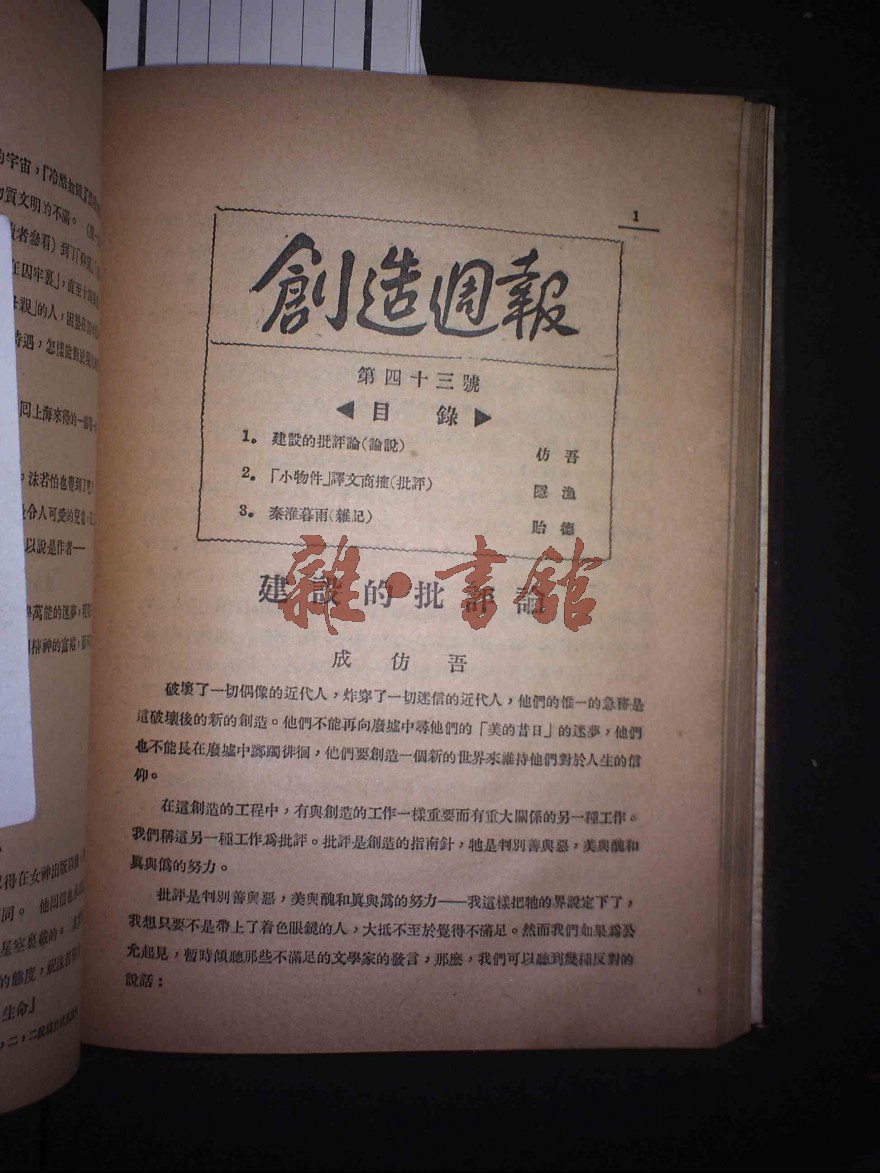 1
創造週報
第四十三號
◀目 錄▶
1. 建設的批評論(論說) 仿吾
2. 「小物件」譯文商搉(批評) 隱漁
3. 秦淮暮雨(雜記) 貽德
建設的批評論
雜·書館
成仿吾
破壞了一切偶像的近代人，炸穿了一切迷信的近代人，他們的惟一的急務是
這破壞後的新的創造。他們不能再向廢墟中尋他們的「美的昔日」的迷夢，他們
也不能長在廢墟中躑躅徘徊，他們要創造一個新的世界來維持他們對於人生的信
仰。
在這創造的工程中，有與創造的工作一樣重要而有重大關係的另一種工作。
我們稱這另一種工作爲批評。批評是創造的指南針，牠是判別善與惡，美與醜和
眞與僞的努力。
批評是判別善與惡，美與醜和眞與僞的努力——我這樣把牠的界說定下了，
我想只要不是帶上了着色眼鏡的人，大抵不至於覺得不滿足。然而我們如果爲公
允起見，暫時傾聽那些不滿足的文學家的發言，那麽，我們可以聽到幾種反對的
說話：
的宇宙，「冷酷如鐵」
物質文明的不滿。
者參看）到了
在囚牢裏」，直至十
母親」的人，困
待遇，怎樣能對於
回上海來得的一
，沫若怕也覺到了
令人可愛的兒
以說是作者—
萬能的迷夢，
精神的富裕，
記得在女神出版以後
同。 他回信也
星空裏載的。
的態度，
生命」